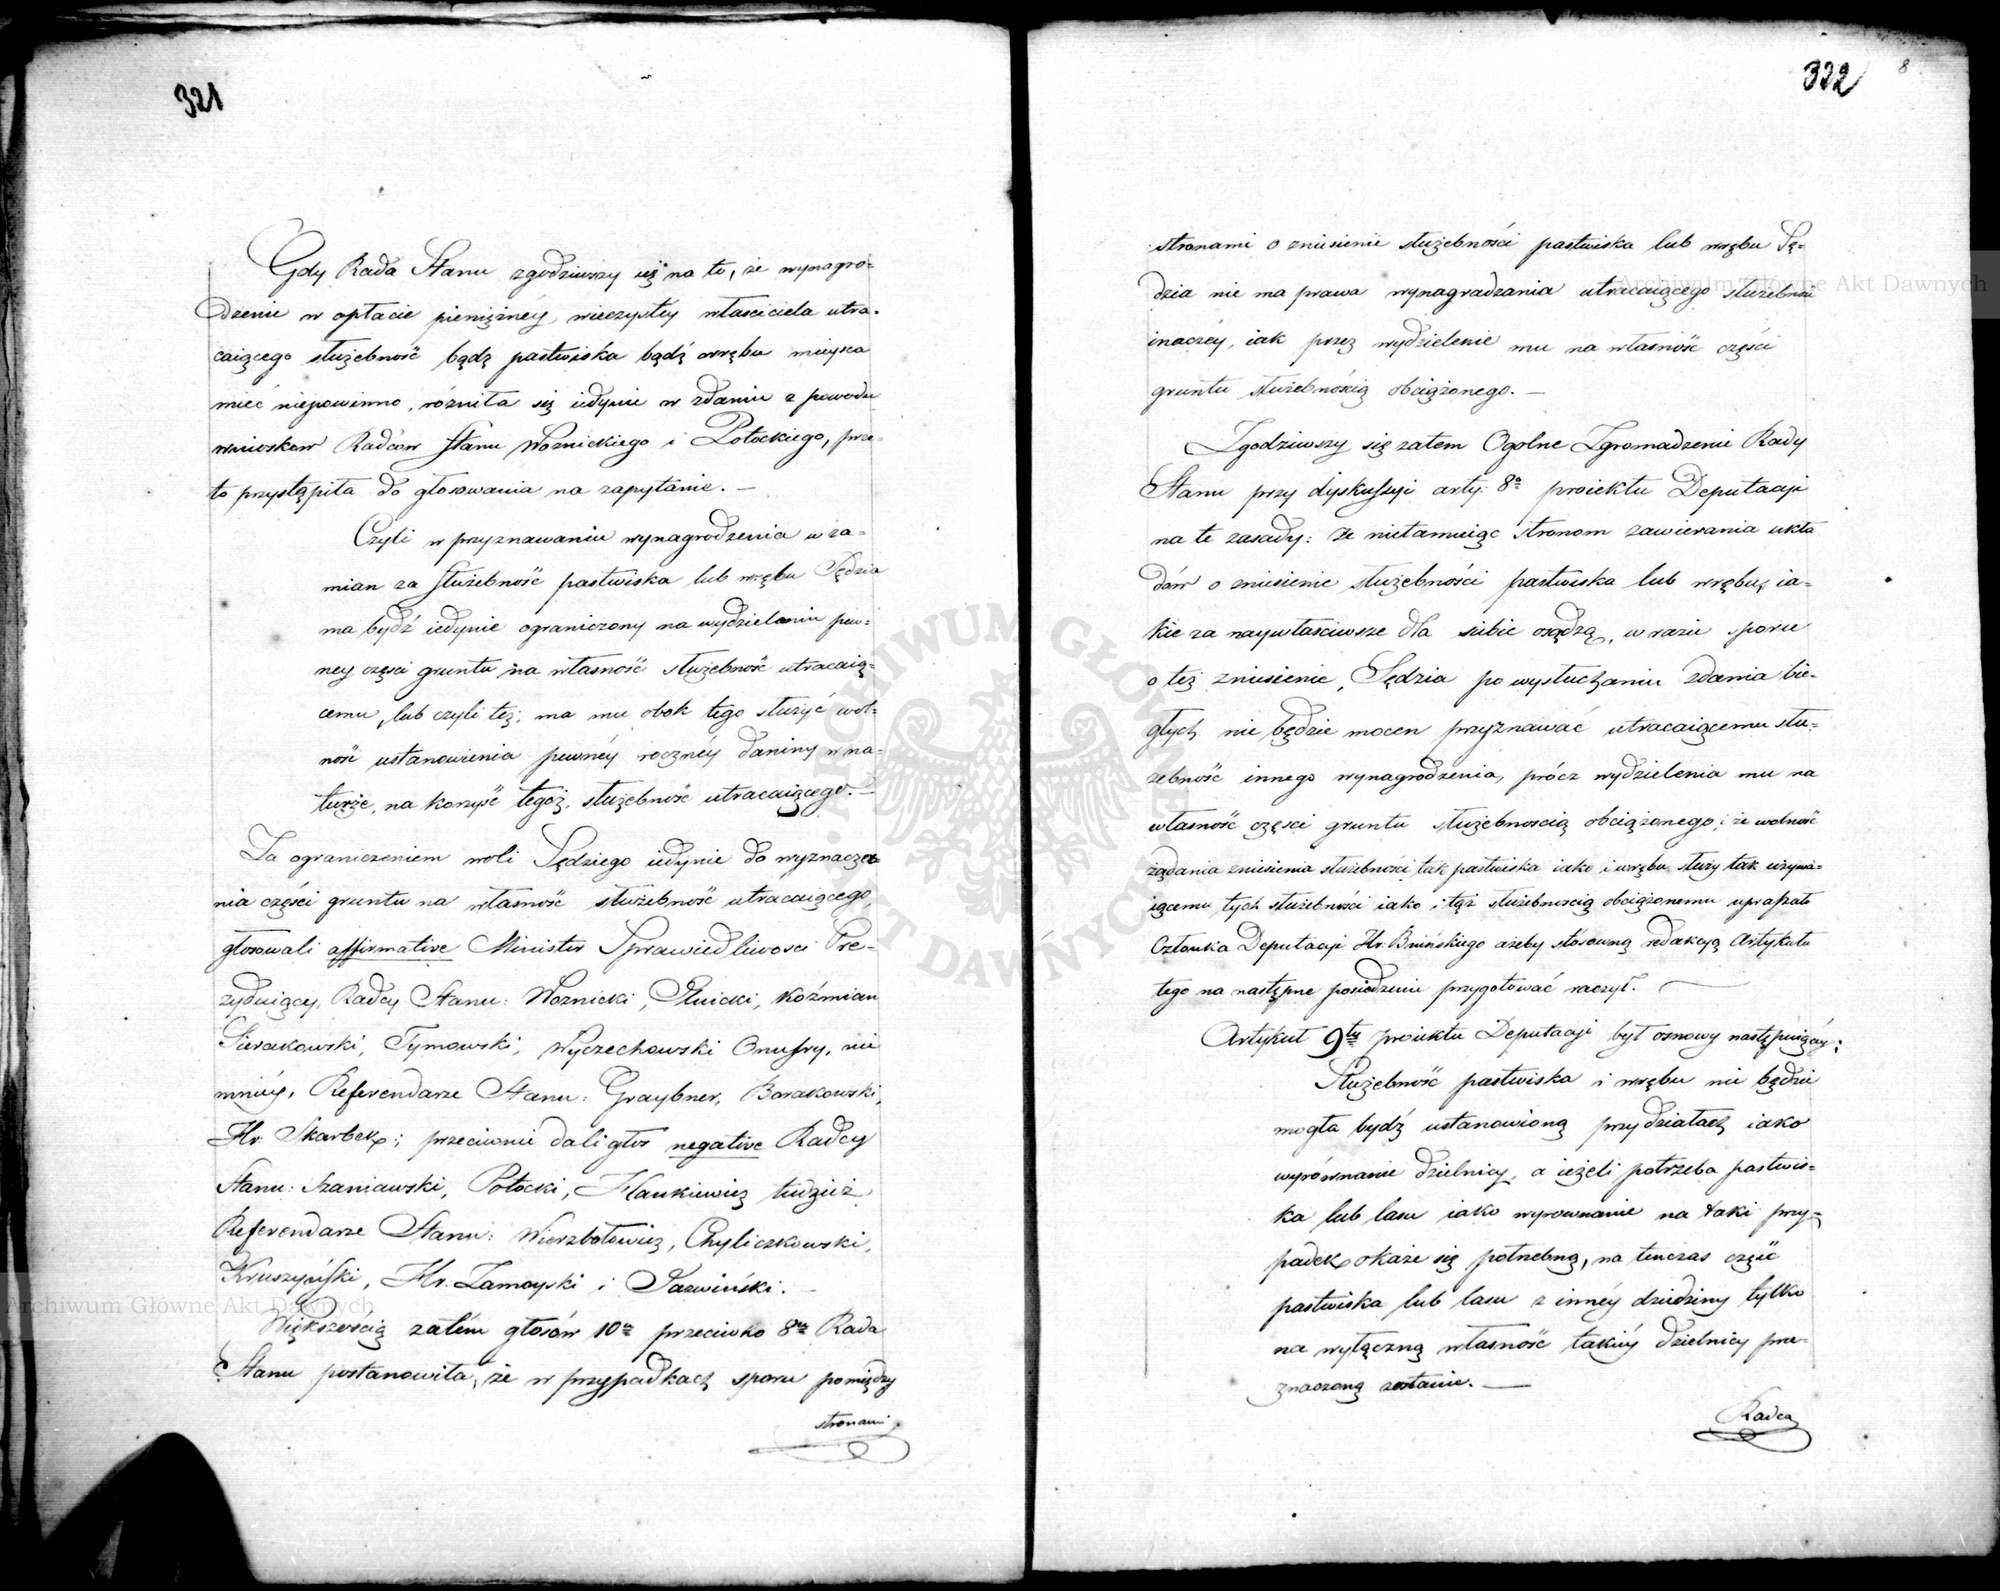 321
Gdy Rada Stanu zgodziwszy się na to, że wynagro-
dzenie w opłacie pieniężnéy wieczystéy właściciela utra-
caiącego służebność bądź pastwiska bądź wrębu mieysca
mieć niepowinno, różniła się iedynie w zdaniu z powodu
wnioskow Radców Stanu Woznickiego i Potockiego, prze-
to przystąpiła do głosowania na zapytanie. —
Czyli w przyznawaniu wynagrodzenia w za-
mian za służebność pastwiska lub wrębu Sędzia
ma bydź iedynie ograniczony na wydzielaniu pew-
ney części gruntu na własność służebność utracaią-
cemu, lub czyli też, ma mu obok tego służyć wol-
ność ustanowienia pewnéy rocznéy daniny w na-
turze, na korzyść tegoż, służebność utracaiącego. —
Za ograniczeniem woli Sędziego iedynie do wyznacze-
nia części gruntu na własność służebność utracaiącego,
głosowali affirmative Minister Sprawiedliwosci Pre-
zyduiący, Radcy Stanu: Woznicki, Gliicki, Koźmian
Sierakowski, Tymowski, Wyczechowski Onufry, nie
mniéy, Referendarze Stanu: Graybner, Borakowski,
Hr. Skarbek; przeciwnie dali głos negative Radcy
Stanu: Szaniawski, Potocki, Hankiewicz tudzież
Referendarze Stanu: Wierzbołowicz, Chyliczkowski,
Kruszyński, Hr. Zamoyski i Jazwiński. —
Większością zatém głosów 10ciu przeciwko 8iu Rada
Stanu postanowiła, że w przypadkach sporu pomiędzy
stronami
322
8
stronami o zniesienie służebności pastwiska lub wrębu Sę-
dzia nie ma prawa wynagradzania utracaiącego służebność
inaczéy, iak przez wydzielenie mu na własność części
gruntu służebnością obciążonego. —
Zgodziwszy się zatem Ogolne Zgromadzenie Rady
Stanu przy dyskussyi arty: 8o proiektu Deputacyi
na te zasady: że nietamuiąc stronom zawierania ukła
dów o zniesienie służebności pastwiska lub wrębu, ia-
kie za naywłaściwsze dla siebie osądzą, w razie sporu
o też zniesienie, Sędzia po wysłuchaniu zdania bie-
głych nie będzie mocen przyznawać utracaiącemu słu-
żebność innego wynagrodzenia, prócz wydzielenia mu na
własność części gruntu służebnością obciążonego; i że wolność
żądania zniesienia służebności tak pastwiska iako i wrębu służy tak używa-
iącemu tych służebności iako i też służebnością obciążonemu uprasza
Członka Deputacyi Hr. Bnińskiego ażeby stósowną redakcyą Artykułu
tego na następne posiedzenie przygotować raczył. —
Artykuł 9ty proiektu Deputacyi był osnowy następuiącéy:
Służebność pastwiska i wrębu nie będzie
mogła bydź ustanowioną przy działach iako
wyrównanie dzielnicy, a ieżeli potrzeba pastwis-
ka lub lasu iako wyrownanie na taki przy-
padek okaże się potrzebną, na tenczas część
pastwiska lub lasu z innéy dziedziny tylko
na wyłączną własność takiéy dzielnicy prze-
znaczoną zostanie. —
Radca
Archiwum Główne Akt Dawnych
Archiwum Główne Akt Dawnych
ARCHIWUM GŁÓWNE AKT DAWNYCH